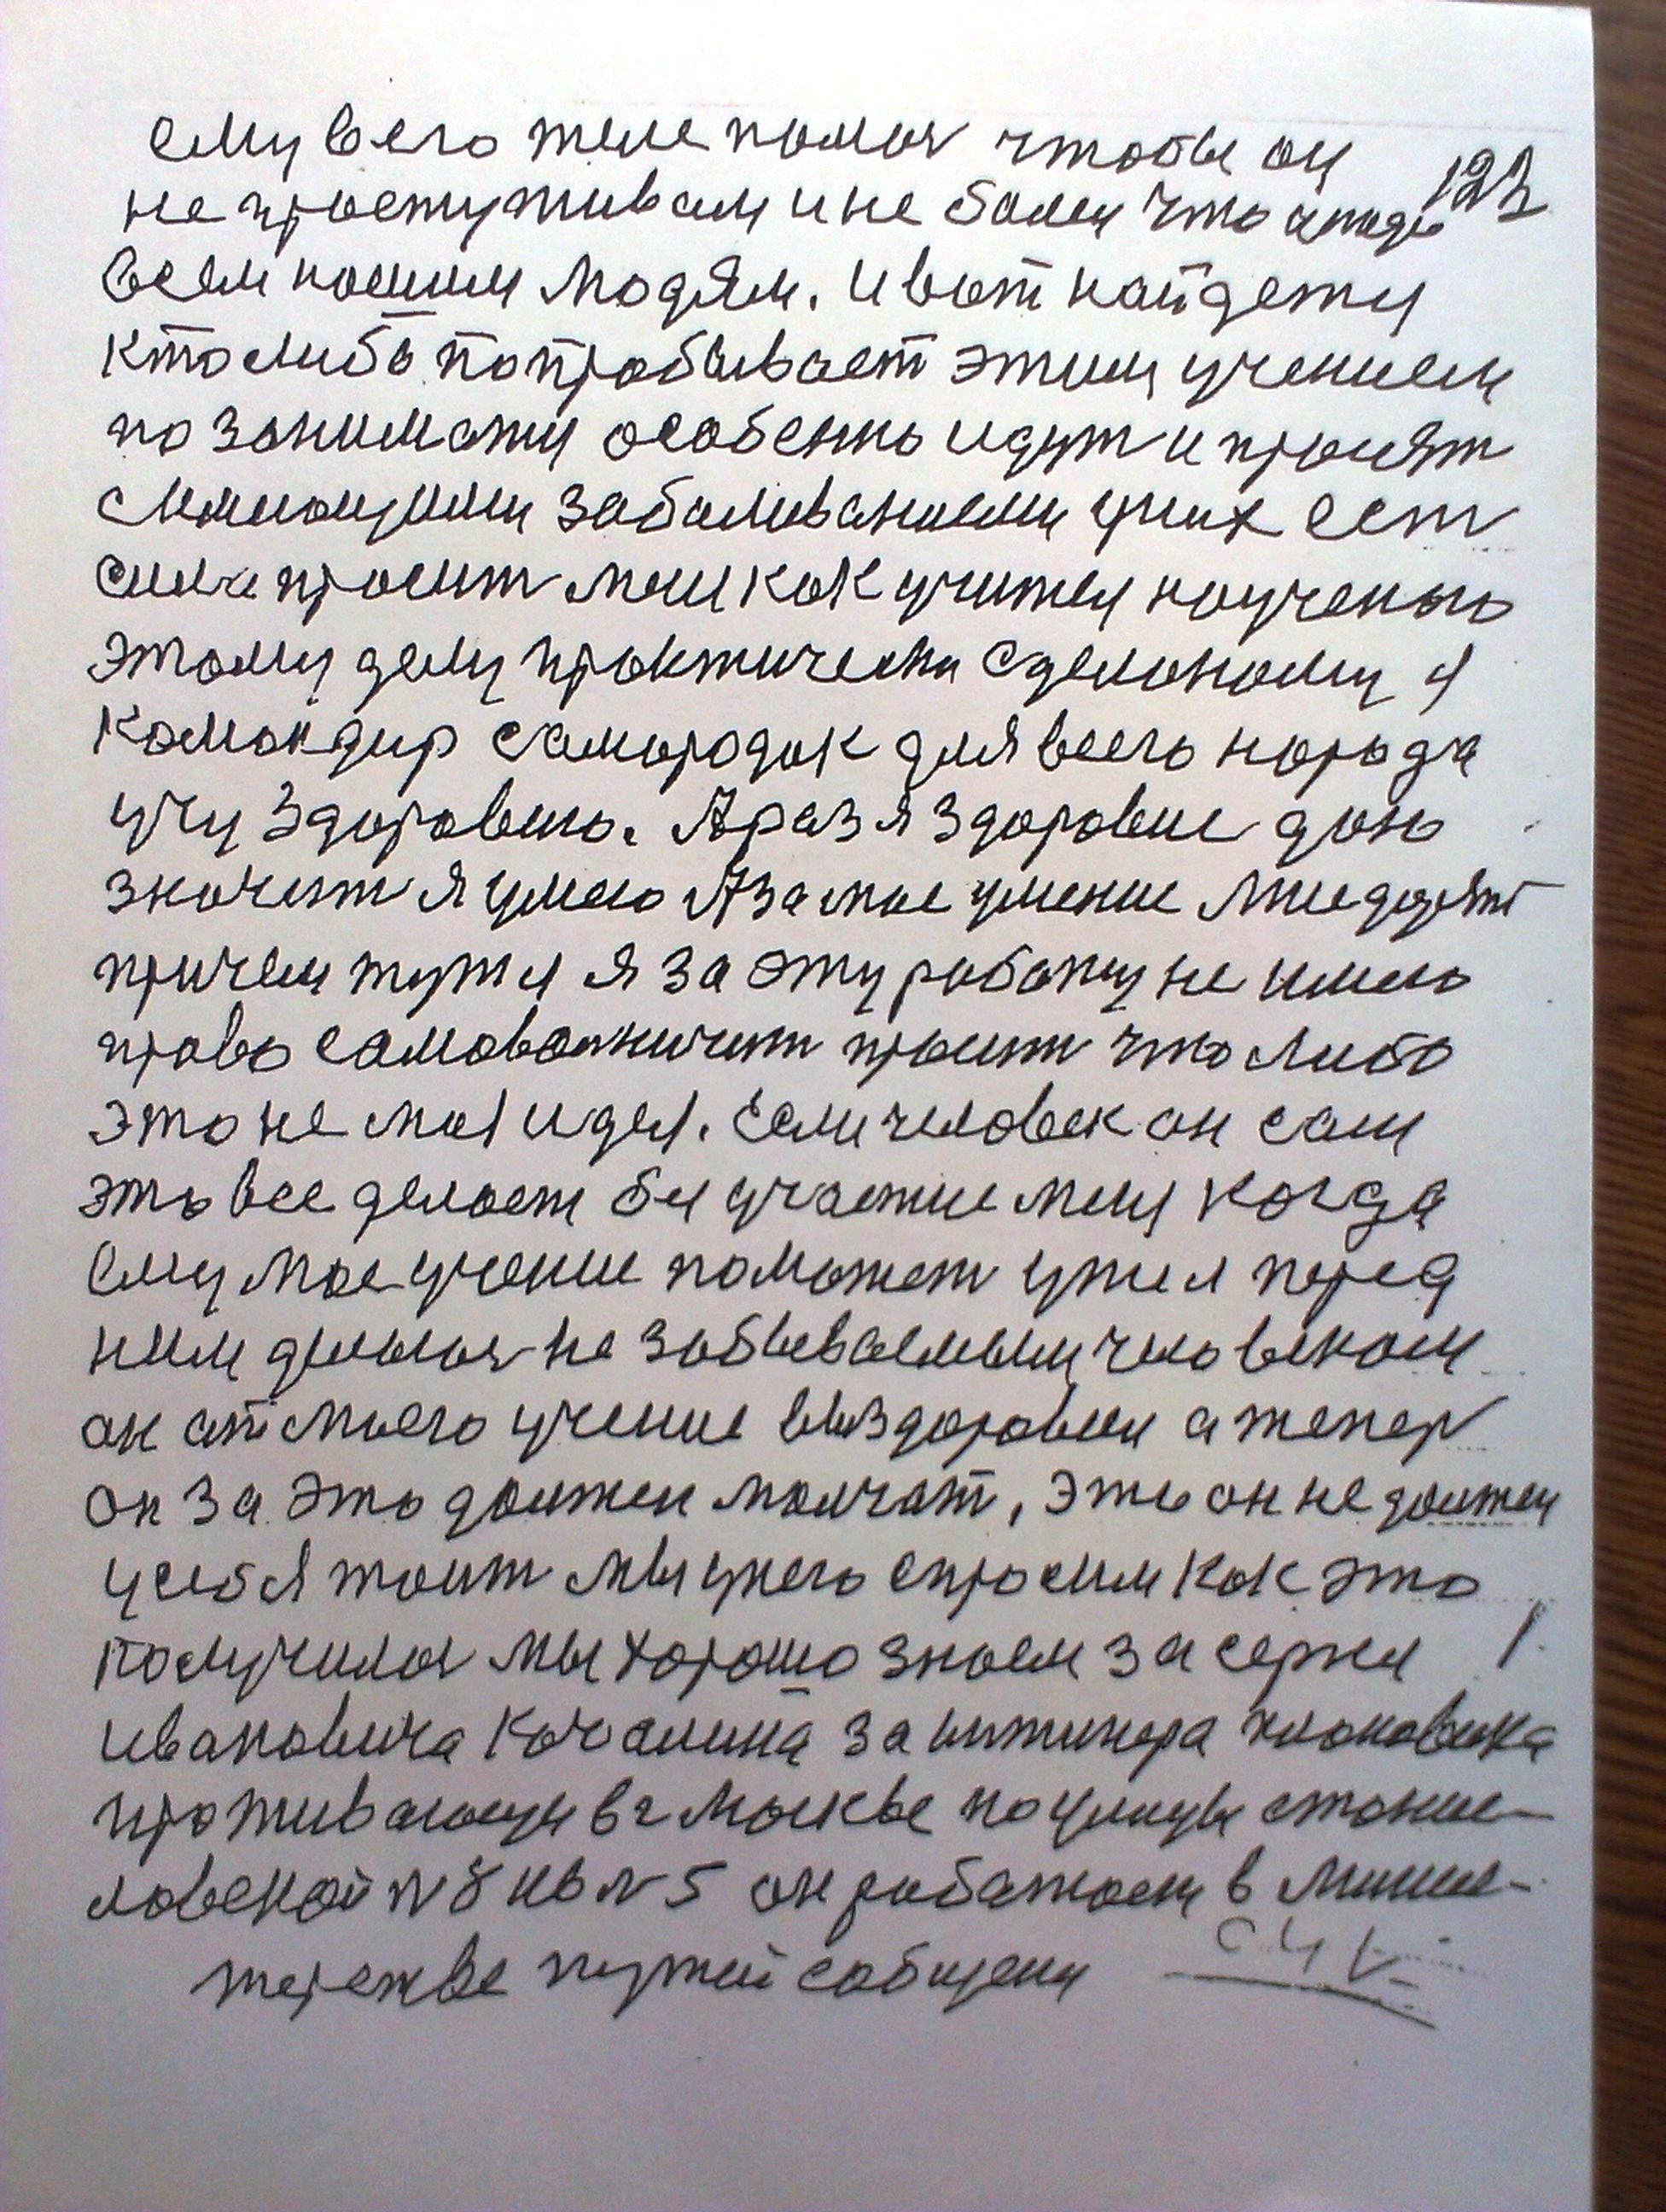 ему в его теле помоч чтобы он
123
не простуживалы и не болел что и надо
всем нашим людям. И вот найдетця
кто либо попробывает этим учением
по заниматця особенно идут и просят
с имиющими заболиваниеми у них ест
сила просит мени как учителя наученаго
этому делу практически сделоному я
командир самородок для всего народа
учу здоровию. А раз я здоровие даю
значит я умею А за мое умение мне дарят
причем тут я я за эту работу не имею
право самоволничит просит что либо
это не моя идея. Если человек он сам
это все делает без участие мени когда
ему мое учение поможет уже я перед
ним делаюс не забываемым человеком
он от моего учение выздоровел а тепер
он за это должен молчат, это он не должен
у себя таит мы у него спросим как это
получилос мы хорошо знаем за сергея
ивановича Качалина за интинера плановика
проживающи в г Москве по улице стание-
ловской № 8 кв № 5 он работает в Минис-
терстве путей собщени